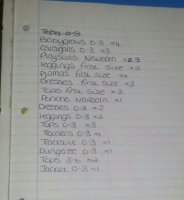 Babygrows 0-3 x4
Cardigans 0-3 x3
Playsuits Newborn x3
Leggings First Size x2
Pjamas First Size
Dresses First Size x3
Tops First Size x3
Newborn x1
Dresses 0-3 x2
Leggings 0-3 x2
Tops 0-3 x3
Trousers 0-3 x1
Tracksuit 0-3 x1
Dungaree 0-3 x1
Tops 3-6 x2
Jacket 0-3 x1